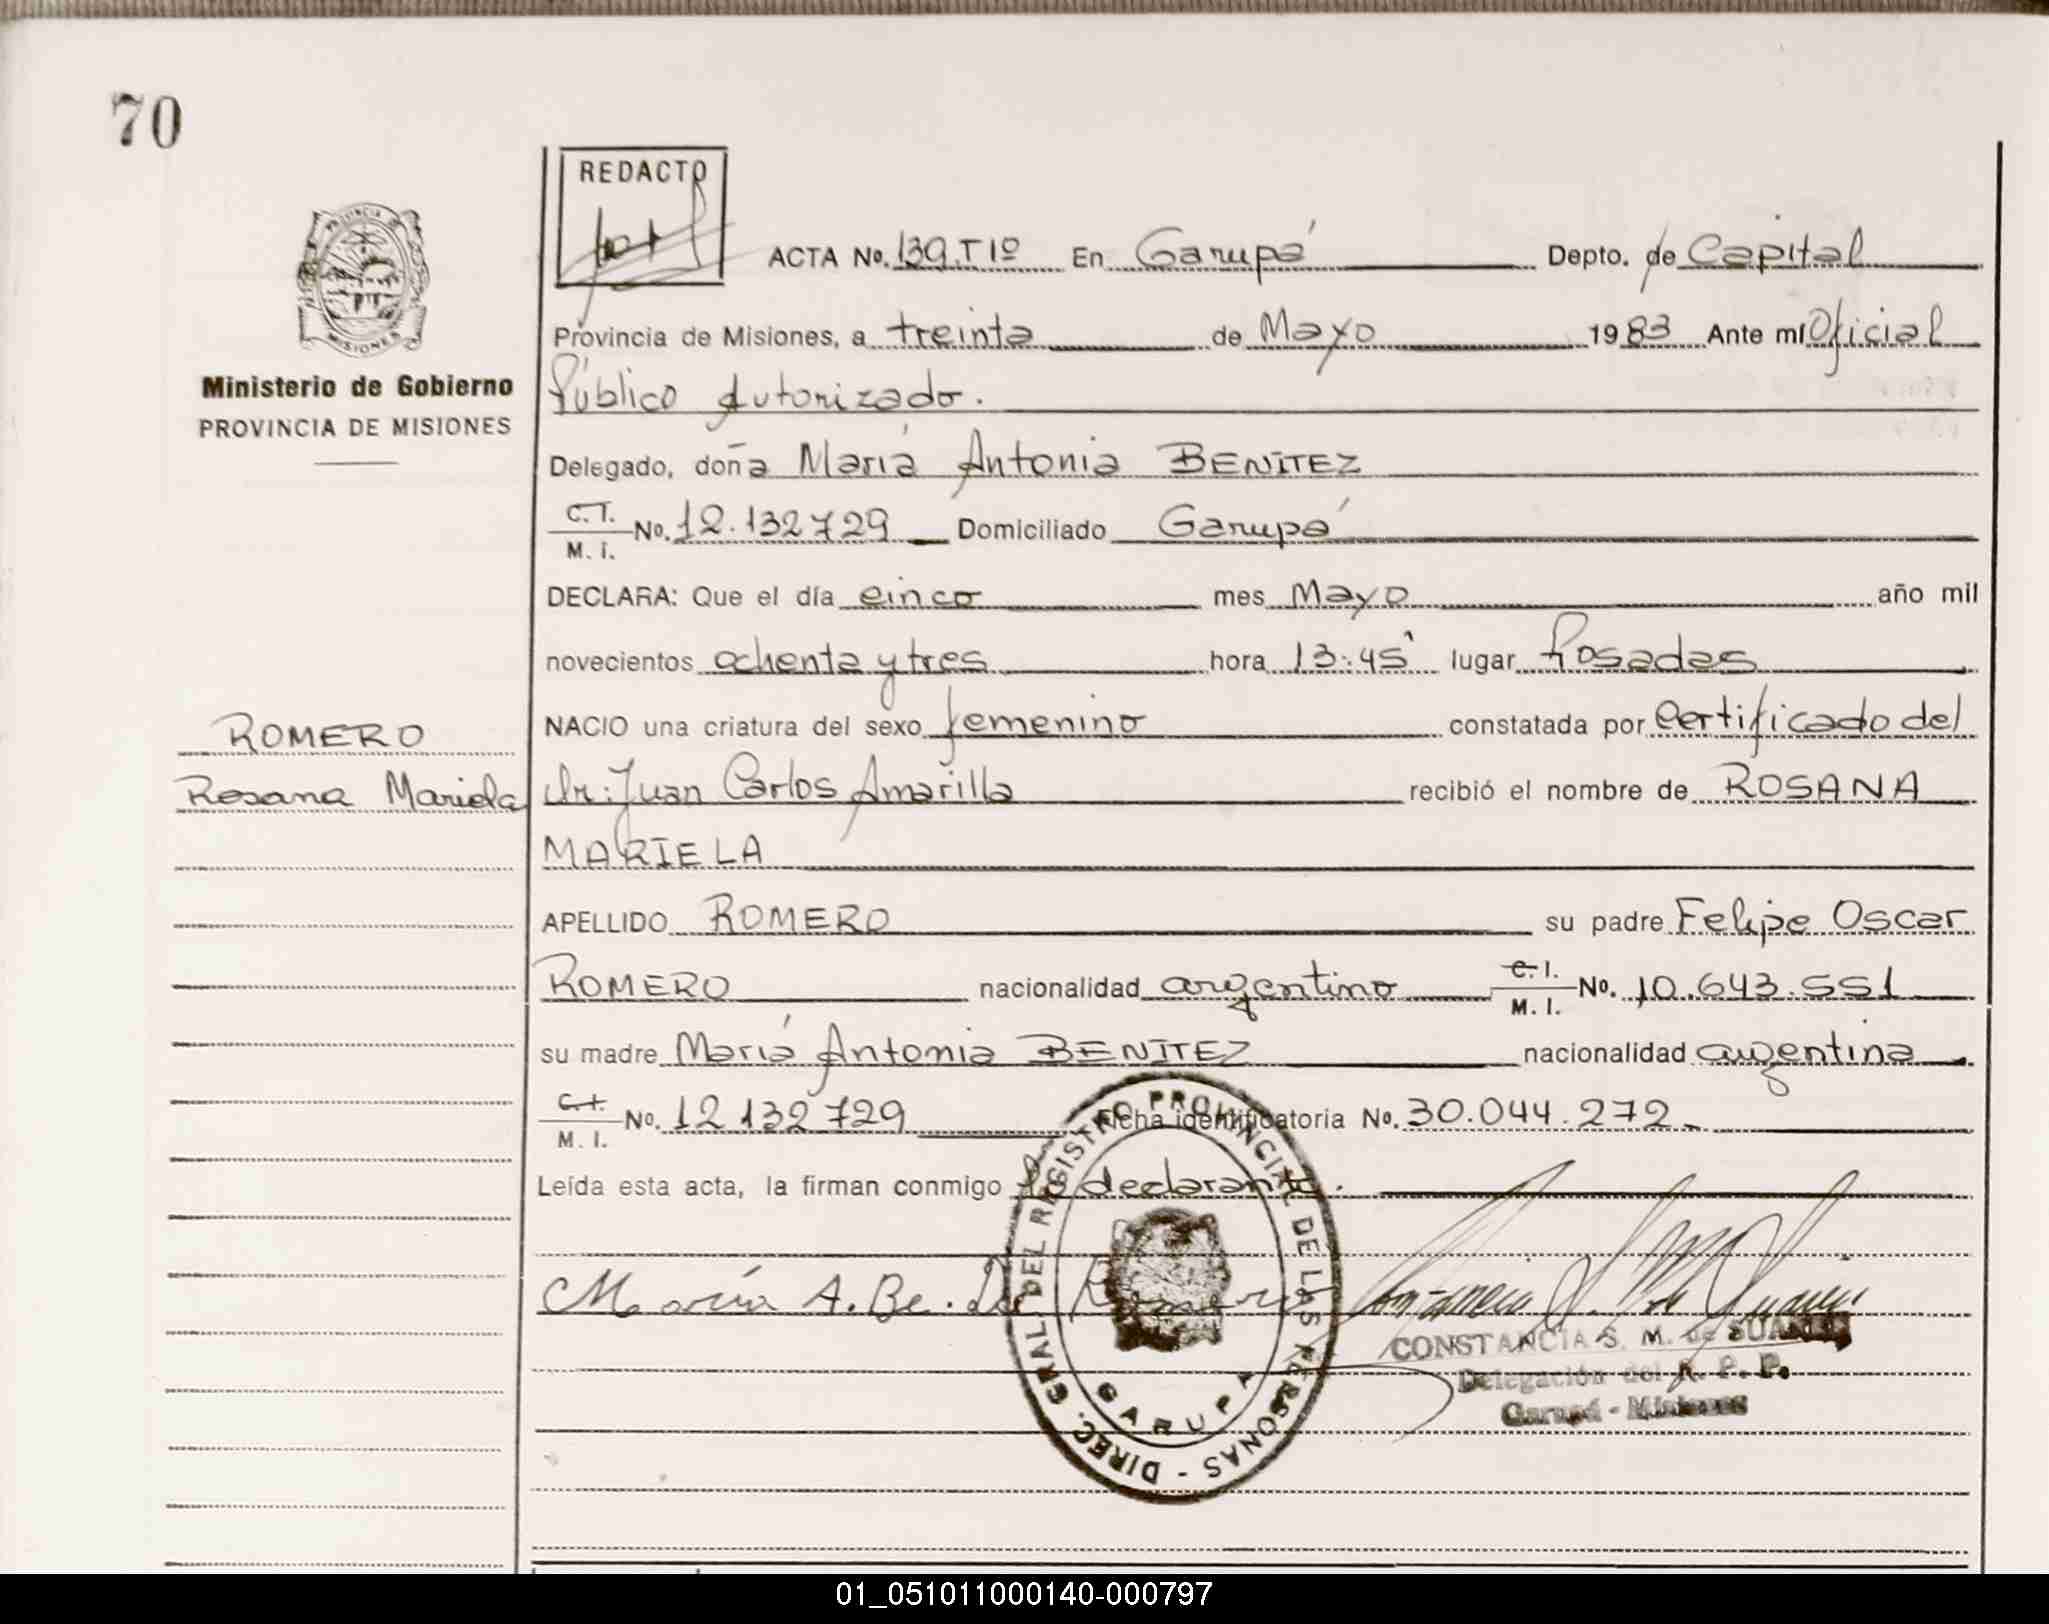 70
REDACTO
ACTA No. 139.T1º En Garupá Depto. de Capital
PROVINCIA DE MISIONES
Provincia de Misiones, a treinta de Mayo 1983 Ante mí Oficial
Ministerio de Gobierno
PROVINCIA DE MISIONES
Público Autorizado.
Delegado, doña María Antonia BENITEZ
C.I. M. I. No. 12.132729 Domiciliado Garupá
DECLARA: Que el día cinco mes Mayo año mil
novecientos ochenta y tres hora 13:45 lugar Posadas
NACIO una criatura del sexo femenino constatada por certificado del
ROMERO
Rosana Mariela
Dr: Juan Carlos Amarilla recibió el nombre de ROSANA
MARIELA
APELLIDO ROMERO su padre Felipe Oscar
ROMERO nacionalidad argentino C.I. M. I. No. 10.643.551
su madre María Antonia BENÍTEZ nacionalidad argentina
C.I. M. I. No. 12 132 729 Ficha identificatoria No. 30.044.272
Leída esta acta, la firman conmigo la declarante.
María A. Be. De Romero
DIREC. GRAL. DEL REGISTRO PROVINCIAL DE LAS PERSONAS -
GARUPA
CONSTANCIA S. M. de SUAREZ
Delegación del R. P. P.
Garupá - Misiones
01_051011000140-000797